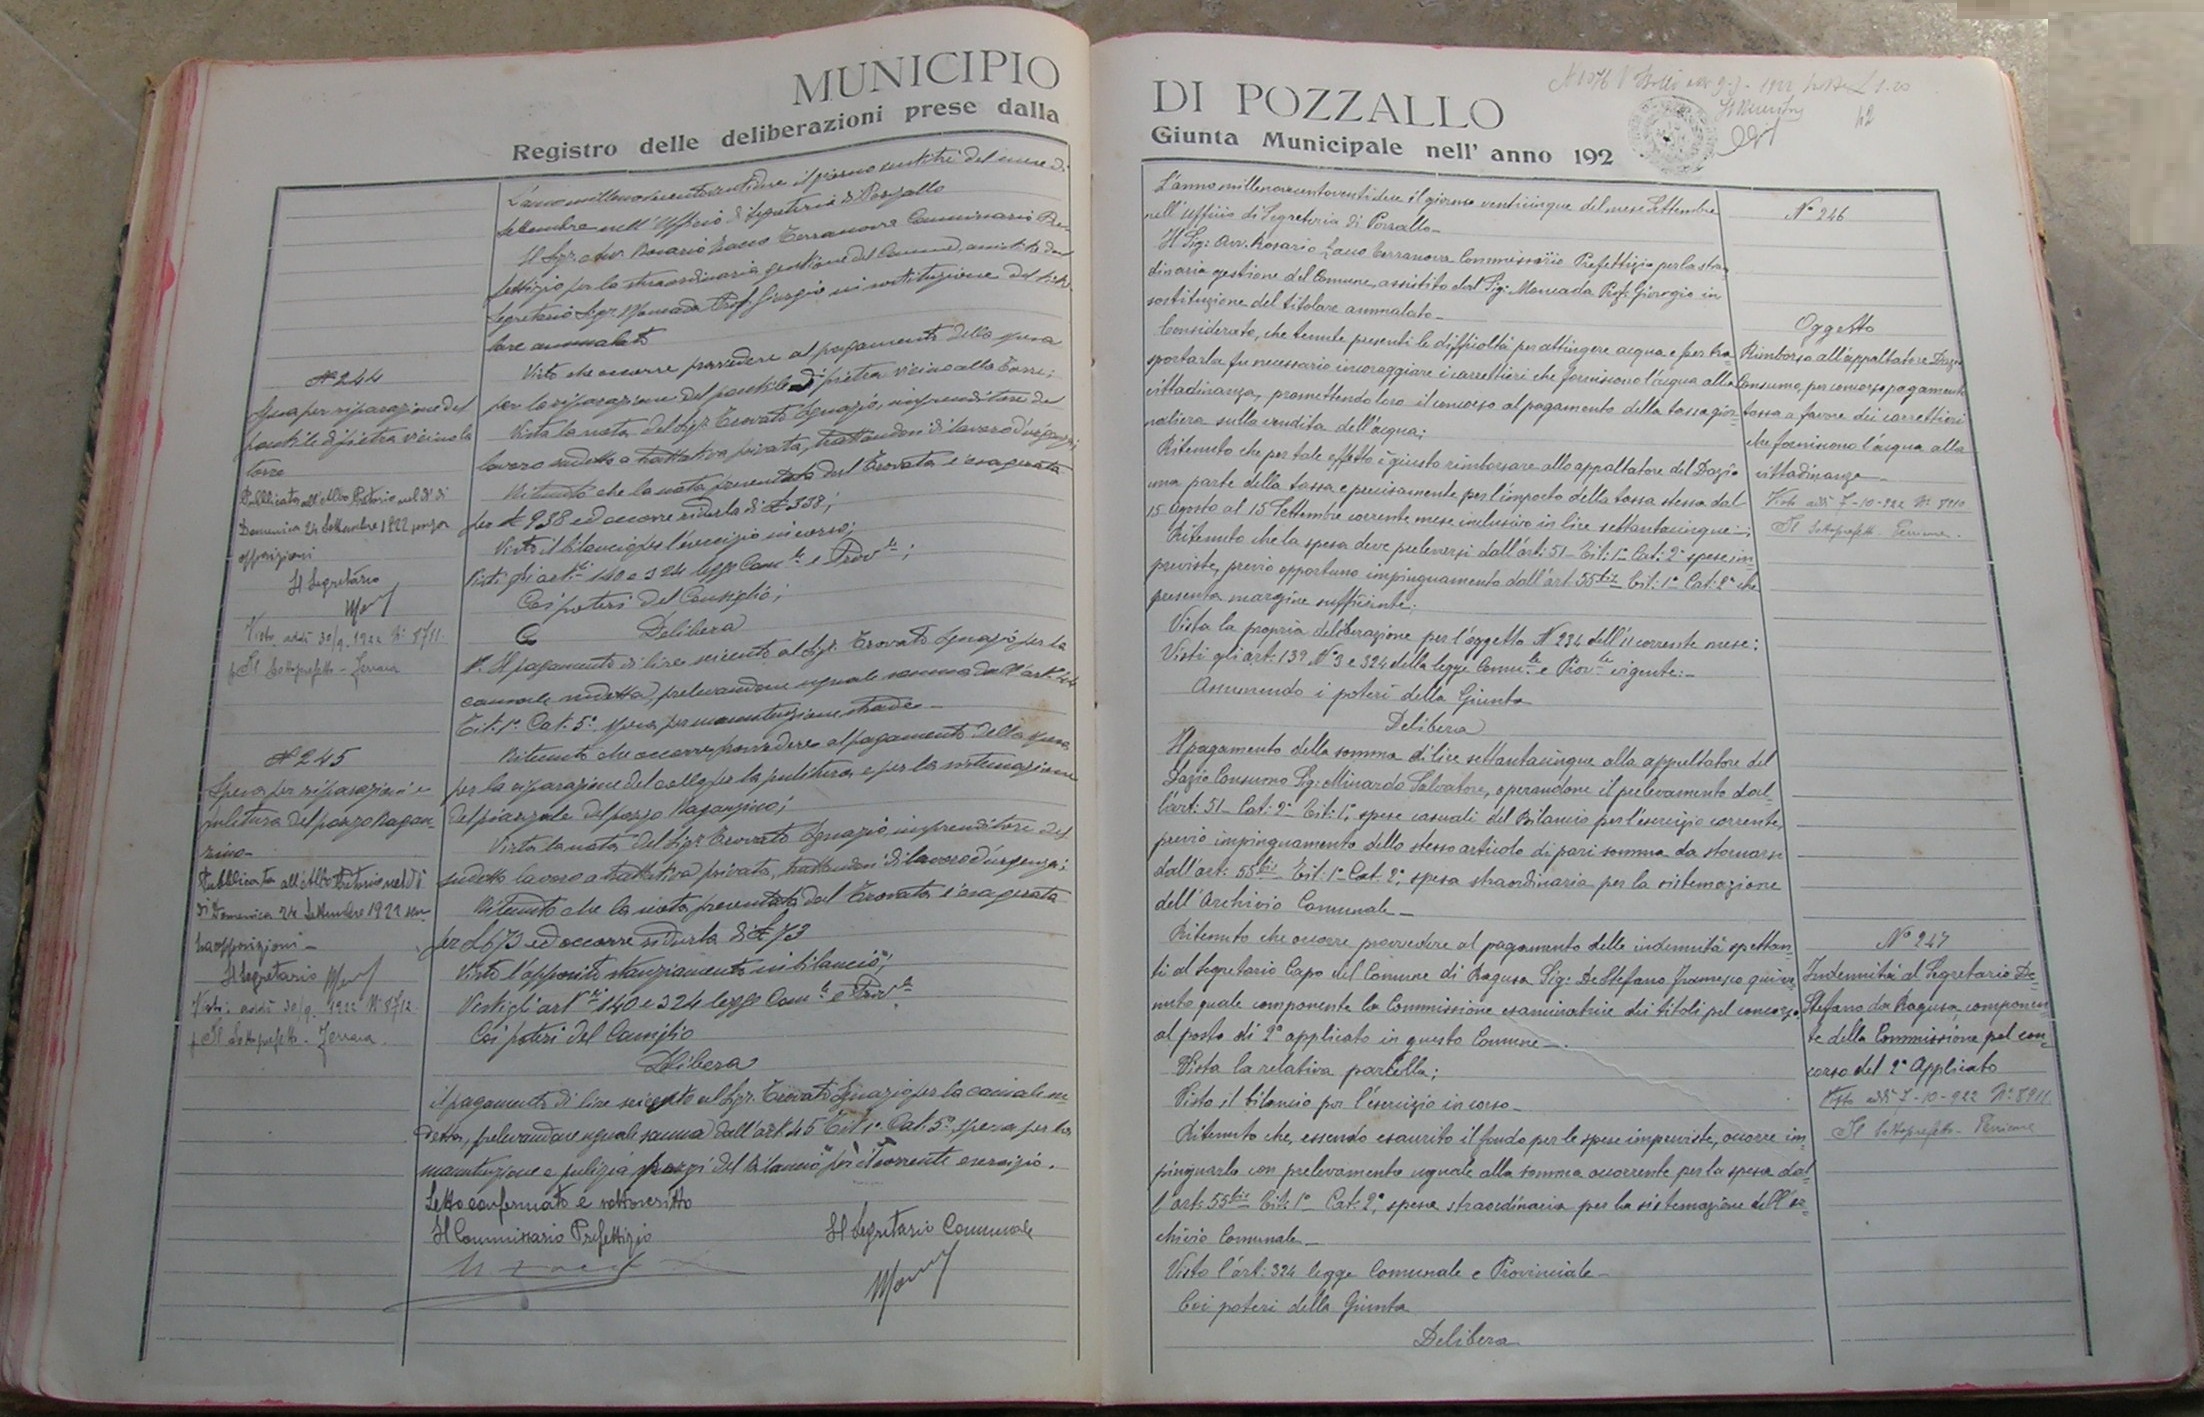 MUNICIPIO
Registro delle deliberazioni prese dalla
L'anno millenovecentoventidue il giorno ventitrè del mese di
Settembre nell'Ufficio di Segreteria di Pozzallo
Il Sigr. Avv. Rosario Zacco Terranova Commissario Pre-
fettizio per la straordinaria gestione del Comune, assistito dal
Segretario Sigr. Moncada Prof. Giorgio in sostituzione del tito-
lare ammalato
N 244
Spesa per riparazione del
pontile di pietra vicino la
torre
Pubblicata all'Albo Pretorio nel dì di
Domenica 24 Settembre 1922 senza
opposizioni
Il Segretario
Visto addì 30/9 1922 N. 8711
p. Il Sottoprefetto - Ferrara
Visto che occorre provvedere al pagamento della spesa
per la riparazione del pontile di pietra vicino alla Torre;
Vista la nota del Sigr. Trovato Ignazio, imprenditore del
lavoro sudetto a trattativa privata, trattandosi di lavoro d'urgenza;
Ritenuto che la nota presentata dal Trovato è esagerata
per £ 938 ed occorre ridurla di £ 338;
Visto il bilancio per l'esercizio in corso;
Visti gli art.li 140 e 324 legge Com.le e Prov.le;
Coi poteri del Consiglio;
Delibera
Il pagamento di lire seicento al Sigr. Trovato Ignazio per la
causale sudetta, prelevandone uguale somma dall'art. 44
Tit. 1° Cat. 5° spesa per manutenzione strade -
N 245
Spesa per riparazioni e
pulitura del pozzo Ragan-
zino -
Pubblicata all'Albo Pretorio nel dì
di Domenica 24 Settembre 1922 sen-
za opposizioni -
Il Segretario
Visto addì 30/9 1922 N 8712
p. Il Sottoprefetto - Ferrara.
Ritenuto che occorre provvedere al pagamento della spesa
per la riparazione del collo per la pulitura e per la sistemazione
del piazzale del pozzo Raganzino;
Vista la nota del Sigr. Trovato Ignazio imprenditore del
sudetto lavoro a trattativa privata, trattandosi di lavoro d'urgenza;
Ritenuto che la nota presentata dal Trovato è esagerata
per £ 673 ed occorre ridurla di £ 73
Visto l'apposito stanziamento in bilancio;
Visti gli art.li 140 e 324 legge Com.le e Prov.le
Coi poteri del Consiglio
Delibera
il pagamento di lire seicento al Sigr. Trovato Ignazio per la causale su-
detta, prelevandone uguale somma dall'art. 45 Tit. 1° Cat. 5°, spesa per la
manutenzione e pulizia pozzi del Bilancio per il corrente esercizio.
Letto confermato e sottoscritto
Il Commissario Prefettizio
Il Segretario Comunale
DI POZZALLO
Giunta Municipale nell'anno 192
42
L'anno millenovecentoventidue il giorno venticinque del mese Settembre
nell'Ufficio di Segreteria di Pozzallo -
Il Sig: Avv. Rosario Zacco Terranova Commissario Prefettizio per la straor-
dinaria gestione del Comune, assistito dal Sig: Moncada Prof. Giorgio in
sostituzione del titolare ammalato -
N° 246
Oggetto
Rimborso all'appaltatore Dazio
Consumo, per concorso pagamento
tassa a favore dei carrettieri
che forniscono l'acqua alla
cittadinanza -
Visto addì 7-10-922 N° 8910
Il Sottoprefetto
Considerato, che tenute presenti le difficoltà per attingere acqua e per tra-
sportarla fu necessario incoraggiare i carrettieri che forniscono l'acqua alla
cittadinanza, promettendo loro il concorso al pagamento della tassa gior-
naliera sulla vendita dell'acqua;
Ritenuto che per tale effetto è giusto rimborsare allo appaltatore del Dazio
una parte della tassa e precisamente per l'importo della tassa stessa dal
15 Agosto al 15 Settembre corrente mese inclusivo in lire settantacinque -;
Ritenuto che la spesa deve prelevarsi dall'art: 51 - Tit: 1° Cat: 2° spese im-
previste, previo opportuno impinguamento dall'art. 55 bis Tit: 1° Cat: 2° che
presenta margine sufficiente;
Vista la propria deliberazione per l'oggetto N 234 dell'11 corrente mese;
Visti gli art: 139 N° 3 e 324 della legge Comu.le e Prov.le vigente: -
Assumendo i poteri della Giunta
Delibera
Il pagamento della somma di lire settantacinque alla appaltatore del
Dazio Consumo Sig: Minardo Salvatore, operandone il prelevamento dal-
l'art: 51 - Cat: 2° Tit: 1°, spese casuali del Bilancio per l'esercizio corrente,
previo impinguamento dello stesso articolo di pari somma da stornarsi
dall'art: 55 bis Tit: 1° Cat. 2°, spesa straordinaria per la sistemazione
dell'Archivio Comunale -
N° 247
Indennità al Segretario De
Stefano da Ragusa, componen-
te della Commissione pel con-
corso del 2° Applicato
Visto addì 7-10-922 N° 8911
Il Sottoprefetto
Ritenuto che occorre provvedere al pagamento delle indennità spettan-
ti al Segretario Capo del Comune di Ragusa Sig: De Stefano Francesco qui ve-
nuto quale componente la Commissione esaminatrice dei titoli pel concorso
al posto di 2° applicato in questo Comune -.
Vista la relativa parcella;
Visto il bilancio per l'esercizio in corso -
Ritenuto che, essendo esaurito il fondo per le spese impreviste, occorre im-
pinguarlo con prelevamento uguale alla somma occorrente per la spesa dal-
l'art: 55 bis Tit: 1° Cat: 2°, spesa straordinaria per la sistemazione dell'ar-
chivio Comunale -
Visto l'art: 324 legge Comunale e Provinciale -
Coi poteri della Giunta
Delibera